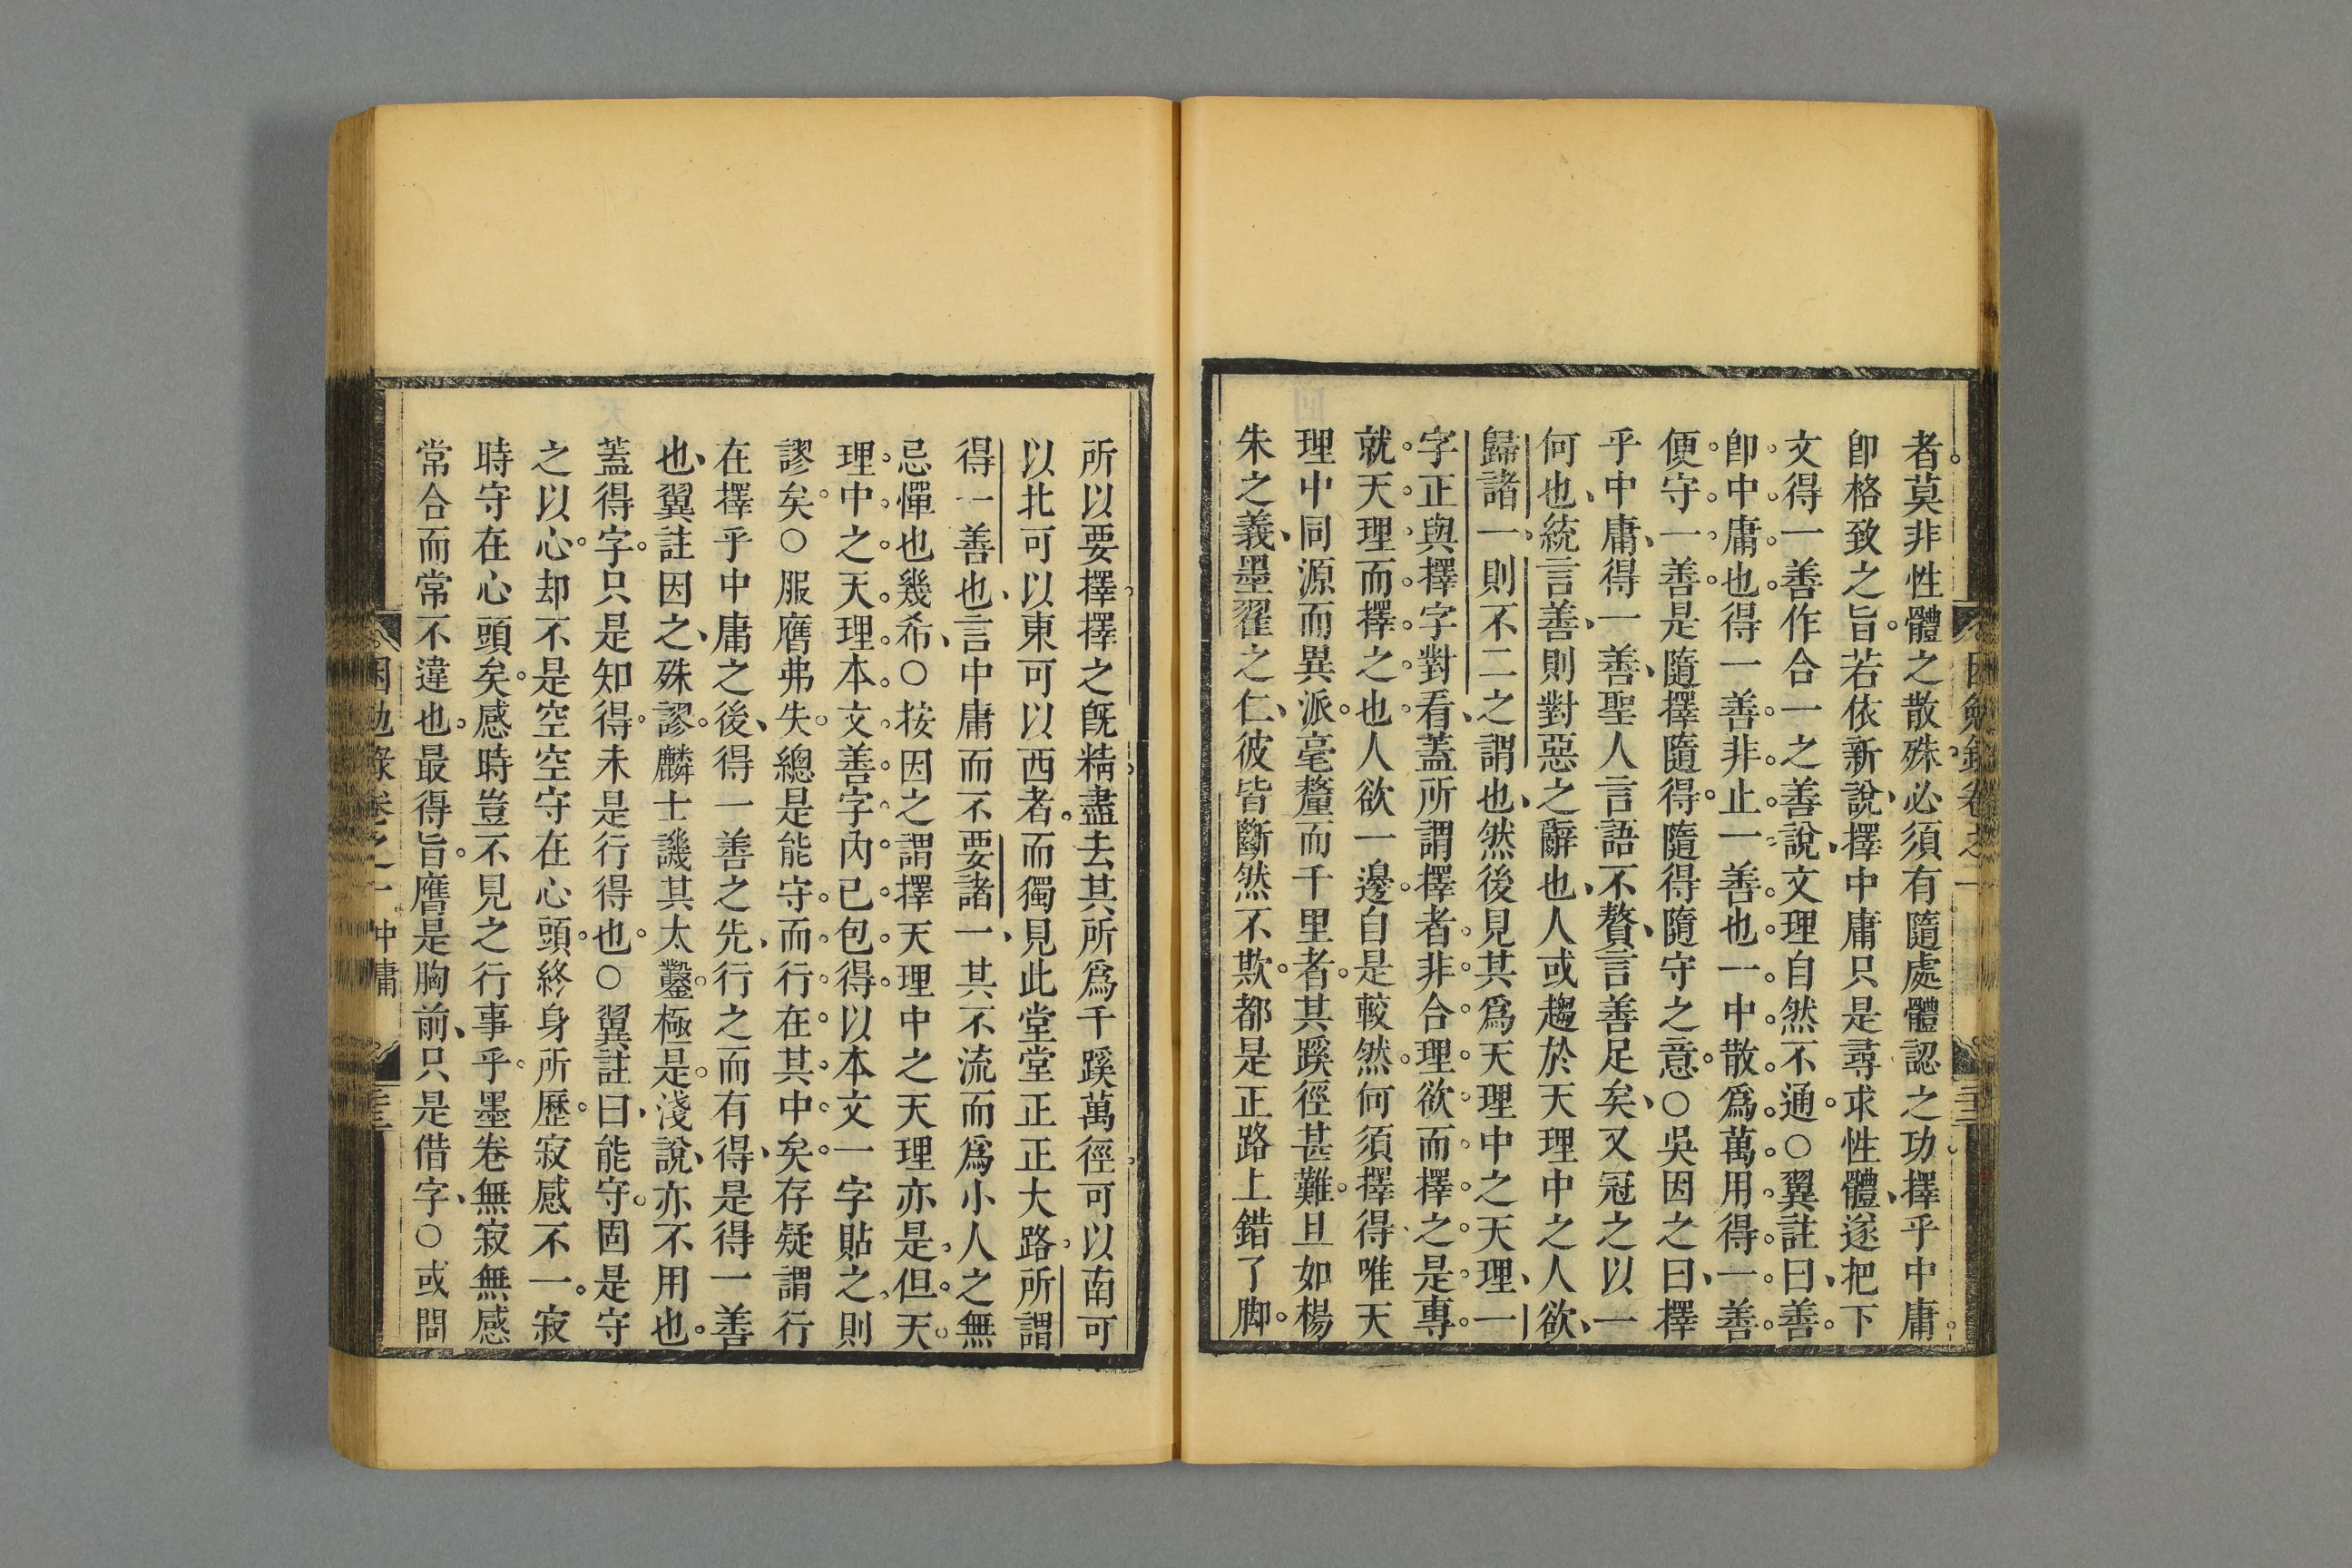 者莫非性體之散殊必須有隨處體認之功擇乎中庸
卽格致之旨若依新說擇中庸只是尋求性體遂把下
文得一善作合一之善說文理自然不通○翼註曰善
卽中庸也得一善非止一善也一中散爲萬用得一善
便守一善是隨擇隨得隨得隨守之意○吳因之曰擇
乎中庸得一善聖人言語不贅言善足矣又冠之以一
何也統言善則對惡之辭也人或趨於天理中之人欲
歸諸一則不二之謂也然後見其爲天理中之天理一
字正與擇字對看蓋所謂擇者非合理欲而擇之是專
就天理而擇之也人欲一邊自是較然何須擇得唯天
理中同源而異派毫釐而千里者其蹊徑甚難且如楊
朱之義墨翟之仁彼皆斷然不欺都是正路上錯了脚
所以要擇擇之旣精盡去其所爲千蹊萬徑可以南可
以北可以東可以西者而獨見此堂堂正正大路所謂
得一善也言中庸而不要諸一其不流而爲小人之無
忌憚也幾希○按因之謂擇天理中之天理亦是但天
理中之天理本文善字內已包得以本文一字貼之則
謬矣○服膺弗失總是能守而行在其中矣存疑謂行
在擇乎中庸之後得一善之先行之而有得是得一善
也翼註因之殊謬麟士譏其太鑿極是淺說亦不用也
蓋得字只是知得未是行得也○翼註曰能守固是守
之以心却不是空空守在心頭終身所歷寂感不一寂
時守在心頭矣感時豈不見之行事乎墨卷無寂無感
常合而常不違也最得旨膺是胸前只是借字○或問
困勉錄卷之一 中庸